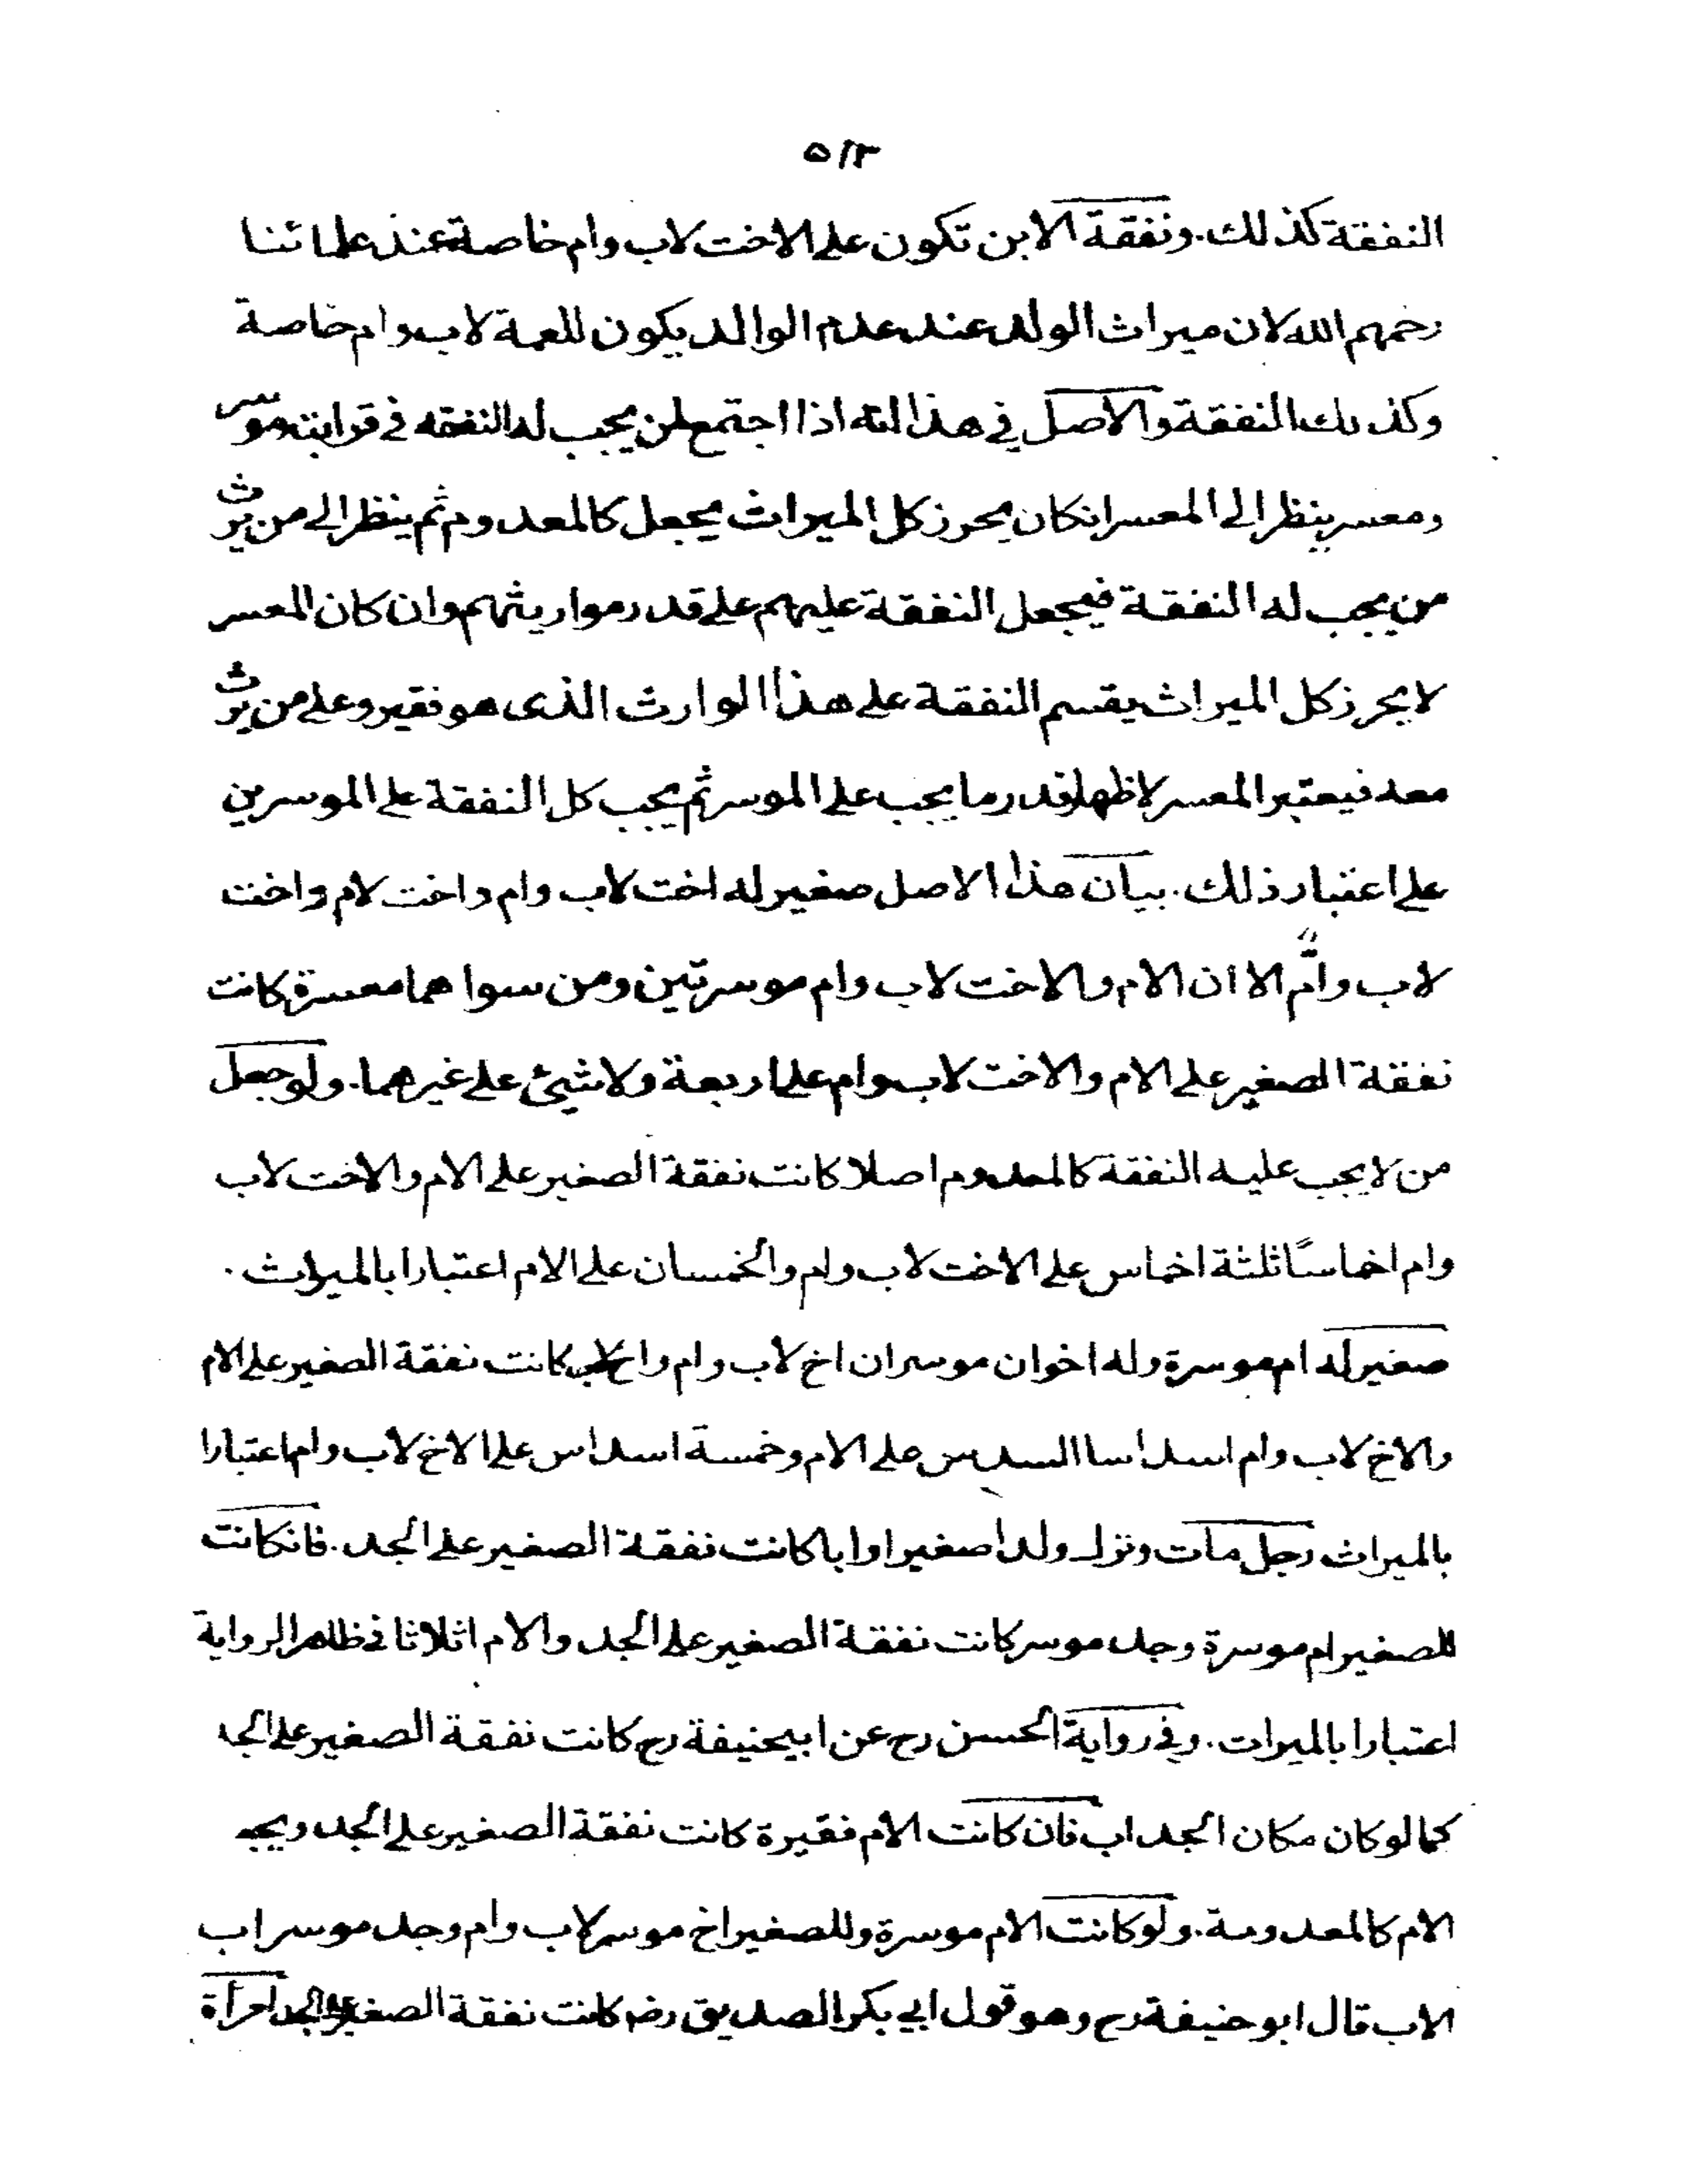 ٥١٢
النفقة كذلك. ونفقة الابن تكون على الاخت لاب وام خاصة عند علمائنا
رحمهم الله لان ميراث الولد عند عدم الوالد يكون للعمة لاب وام خاصة
وكذلك النفقة والاصل في هذا انه اذا اجتمع لمن يجب له النفقه في قرابته موسر
ومعسر ينظر الى المعسر انكان يحرز كل الميراث يجعل كالمعدوم ثم ينظر الى من يرث
من يجب له النفقة فيجعل النفقة عليهم على قدر مواريثهم وان كان المعسر
لا يحرز كل الميراث يقسم النفقة على هذا الوارث الذى هو فقير وعلى من يرث
معه فيعتبر المعسر لاظهار قدر ما يجب على الموسر ثم يجب كل النفقة على الموسرين
على اعتبار ذلك. بيان هذا الاصل صغير له اخت لاب وام واخت لام واخت
لاب وامٌّ الا ان الام والاخت لاب وام موسرتين ومن سواهما معسرة كانت
نفقة الصغير على الام والاخت لاب وام على اربعة ولا شيئ على غيرهما. ولو جعل
من لا يجب عليه النفقة كالمعدوم اصلا كانت نفقة الصغير على الام والاخت لاب
وام اخماسًا ثلثة اخماس على الاخت لاب وام والخمسان على الام اعتبارا بالميراث.
صغير له ام موسرة وله اخوان موسران اخ لاب وام واخ لاب كانت نفقة الصغير على الام
والاخ لاب وام اسداسا السدس على الام وخمسة اسداس على الاخ لاب وام اعتبارا
بالميراث رجل مات وترك ولدا صغيرا وابا كانت نفقة الصغير على الجد. فانكانت
للصغير ام موسرة وجد موسر كانت نفقة الصغير على الجد والام اثلاثا في ظاهر الرواية
اعتبارا بالميراث. وفي رواية الحسن رح عن ابيحنيفة رح كانت نفقة الصغير على الجد
كما لو كان مكان الجد اب فان كانت الام فقيرة كانت نفقة الصغير على الجد ويجعل
الام كالمعدومة. ولو كانت الام موسرة وللصغير اخ موسر لاب وام وجد موسر اب
الاب قال ابو حنيفة رح وهو قول ابي بكر الصديق رضـ كانت نفقة الصغير على الجد امرأة